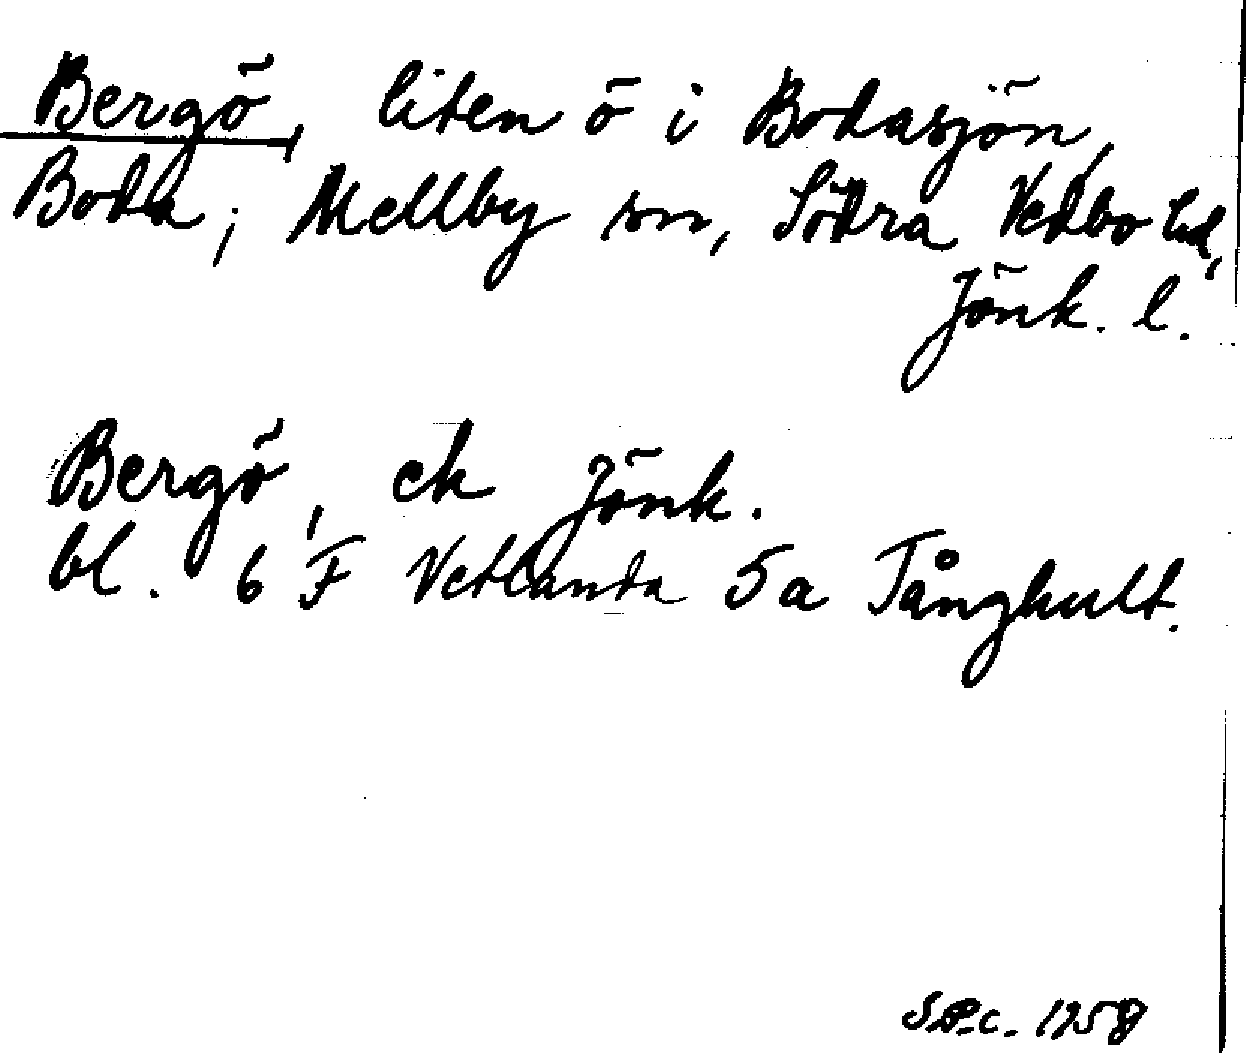 Bergö, liten ö i Bodasjön,
Boda, Mellby sn, Södra Vedbo hd,
Jönk. l.
Bergö, ek Jönk.
bl. 6 F Vetlanda 5a Tånghult.
1958